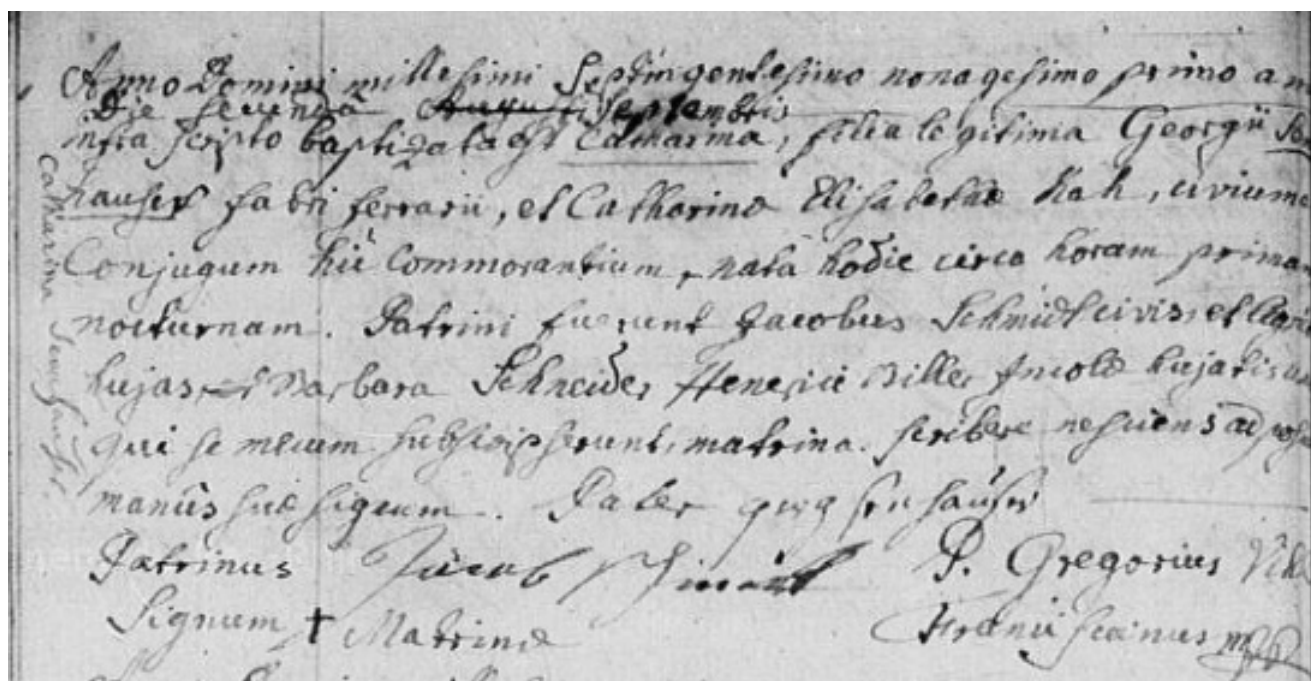 Anno Domini millesimi Septingentesimo nonagesimo primo a m
Die secunda Augusti Septembris
infra scripto baptizata est Catharina, filia legitima Georgii
hauser fabri ferrarii, et Catharinæ Elisabethæ Kah, civium
Conjugum hic Commorantium, nata hodie circa horam prima
nocturnam. Patrini fuerunt Jacobus Schmidt civis, et
hujas, et Barbara Schneider Henerici Biller Incolæ hujatis
qui se mecum subscripserunt, matrina scribere nesciens ad
manus suæ signum. Pater
Patrinus Jacob Schmidt P. Gregorius
Signum + Matrinæ Franciscanus
Catharina